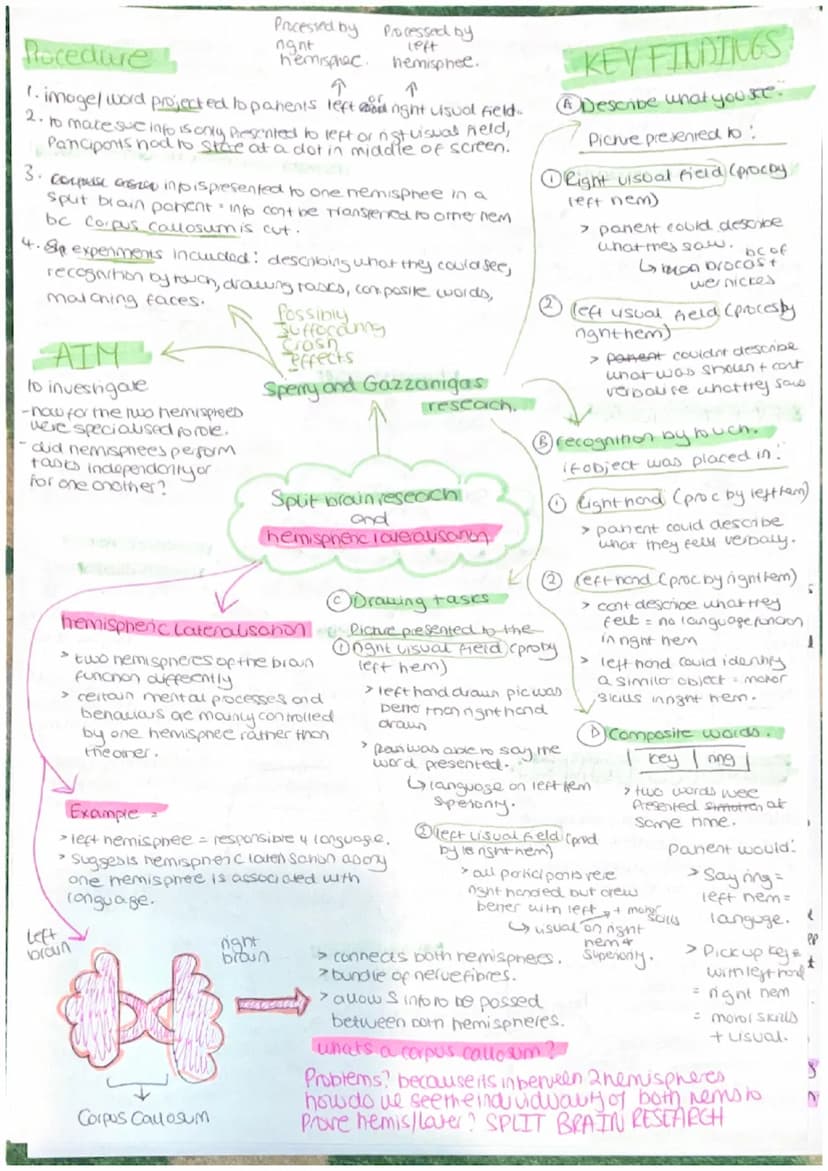 Procedure
Processed by right hemispheric.
Processed by left hemisphere.
1. image/word projected to patients left or right visual field.
2. to make sure info is only presented to left or right visual field,
Participants had to stare at a dot in middle of screen.
3. info is presented to one hemisphere in a
split brain patient = info can't be transferred to other hem
bc corpus callosum is cut.
4. experiments included: describing what they could see,
recognition by touch, drawing tasks, composite words,
matching faces.
Possibly
Suffocating
Crash
Effects
AIM
to investigate
- how far the two hemispheres
were specialised to role.
- did hemispheres perform
tasks independently or
for one another?
Sperry and Gazzanigas
research.
Split brain research
and
hemispheric lateralisation
KEY FINDINGS
(A) Describe what you see:
Picture presented to:
① Right visual field (proc by
left hem)
> patient could describe
what they saw.
bc of
brocas +
wernickes
② left visual field (proces by
right hem)
> patient couldnt describe
what was shown + cant
verbalise what they saw
(B) recognition by touch.
if object was placed in:
① Right hand (proc by left hem)
> patient could describe
what they felt verbally.
② left hand (proc by right hem)
> cant describe what they
felt = no language function
in right hem
> left hand could identify
a similar object = motor
skills in right hem.
hemispheric lateralisation
> two hemispheres of the brain
function differently
> certain mental processes and
behaviours are mainly controlled
by one hemisphere rather than
the other.
(C) Drawing tasks
Picture presented to the
① right visual field (pro by
left hem)
> left hand drawn pic was
better than right hand
drawn
> was able to say the
word presented.
language on left hem
superiority.
② left visual field (prod
by right hem)
> all participants were
right handed but drew
better with left
+ motor skills
visual on right
hem
superiority.
(D) Composite words.
key | ring
> two words were
presented at
same time.
patient would:
> Say ring =
left hem =
languge.
> Pick up key
with left hand
= right hem
= motor skills
+ visual.
Example =
> left hemisphere = responsible 4 language.
> suggests hemispheric lateralisation as only
one hemisphere is associated with
language.
left
brain
right
brain
Corpus Callosum
> connects both hemispheres.
> bundle of nerve fibres.
> allows info to be passed
between both hemispheres.
whats a corpus callosum?
Problems? because its inbetween 2 hemispheres
how do we see the individuality of both hems to
Prove hemis/later? SPLIT BRAIN RESEARCH